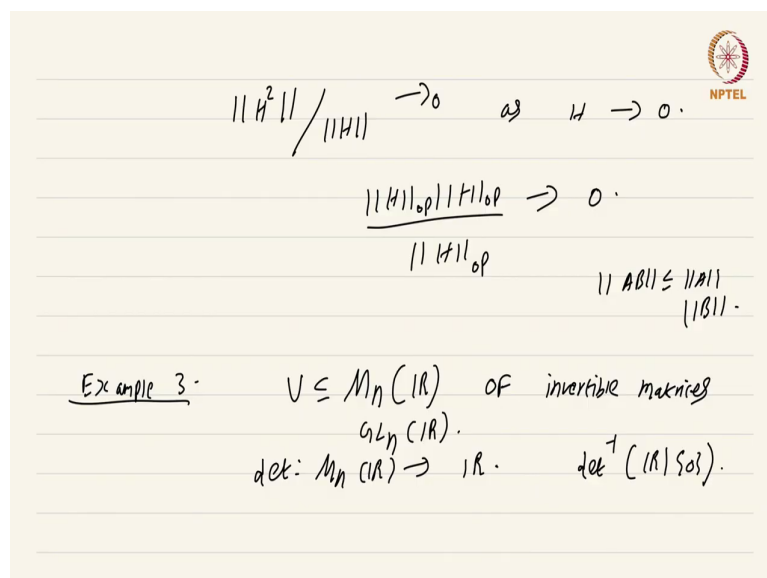 NPTEL
||H²|| / ||H|| → 0 as H → 0.
||H||op ||H||op / ||H||op → 0.
||AB|| ≤ ||A||
||B||.
Example 3. U ⊆ Mn(IR) of invertible matrices
GLn(IR).
det: Mn(IR) → IR. det⁻¹(IR\{0}).